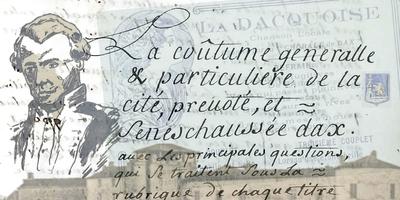 LA DACQUOISE
La coûtume generalle
& particuliere, de la
cité, preuoté, et ≈
Seneschaussée dax.
TROISIÈME COUPLET
avec les principales questions,
qui se traitent sous La ≈
rubrique de chaque titre